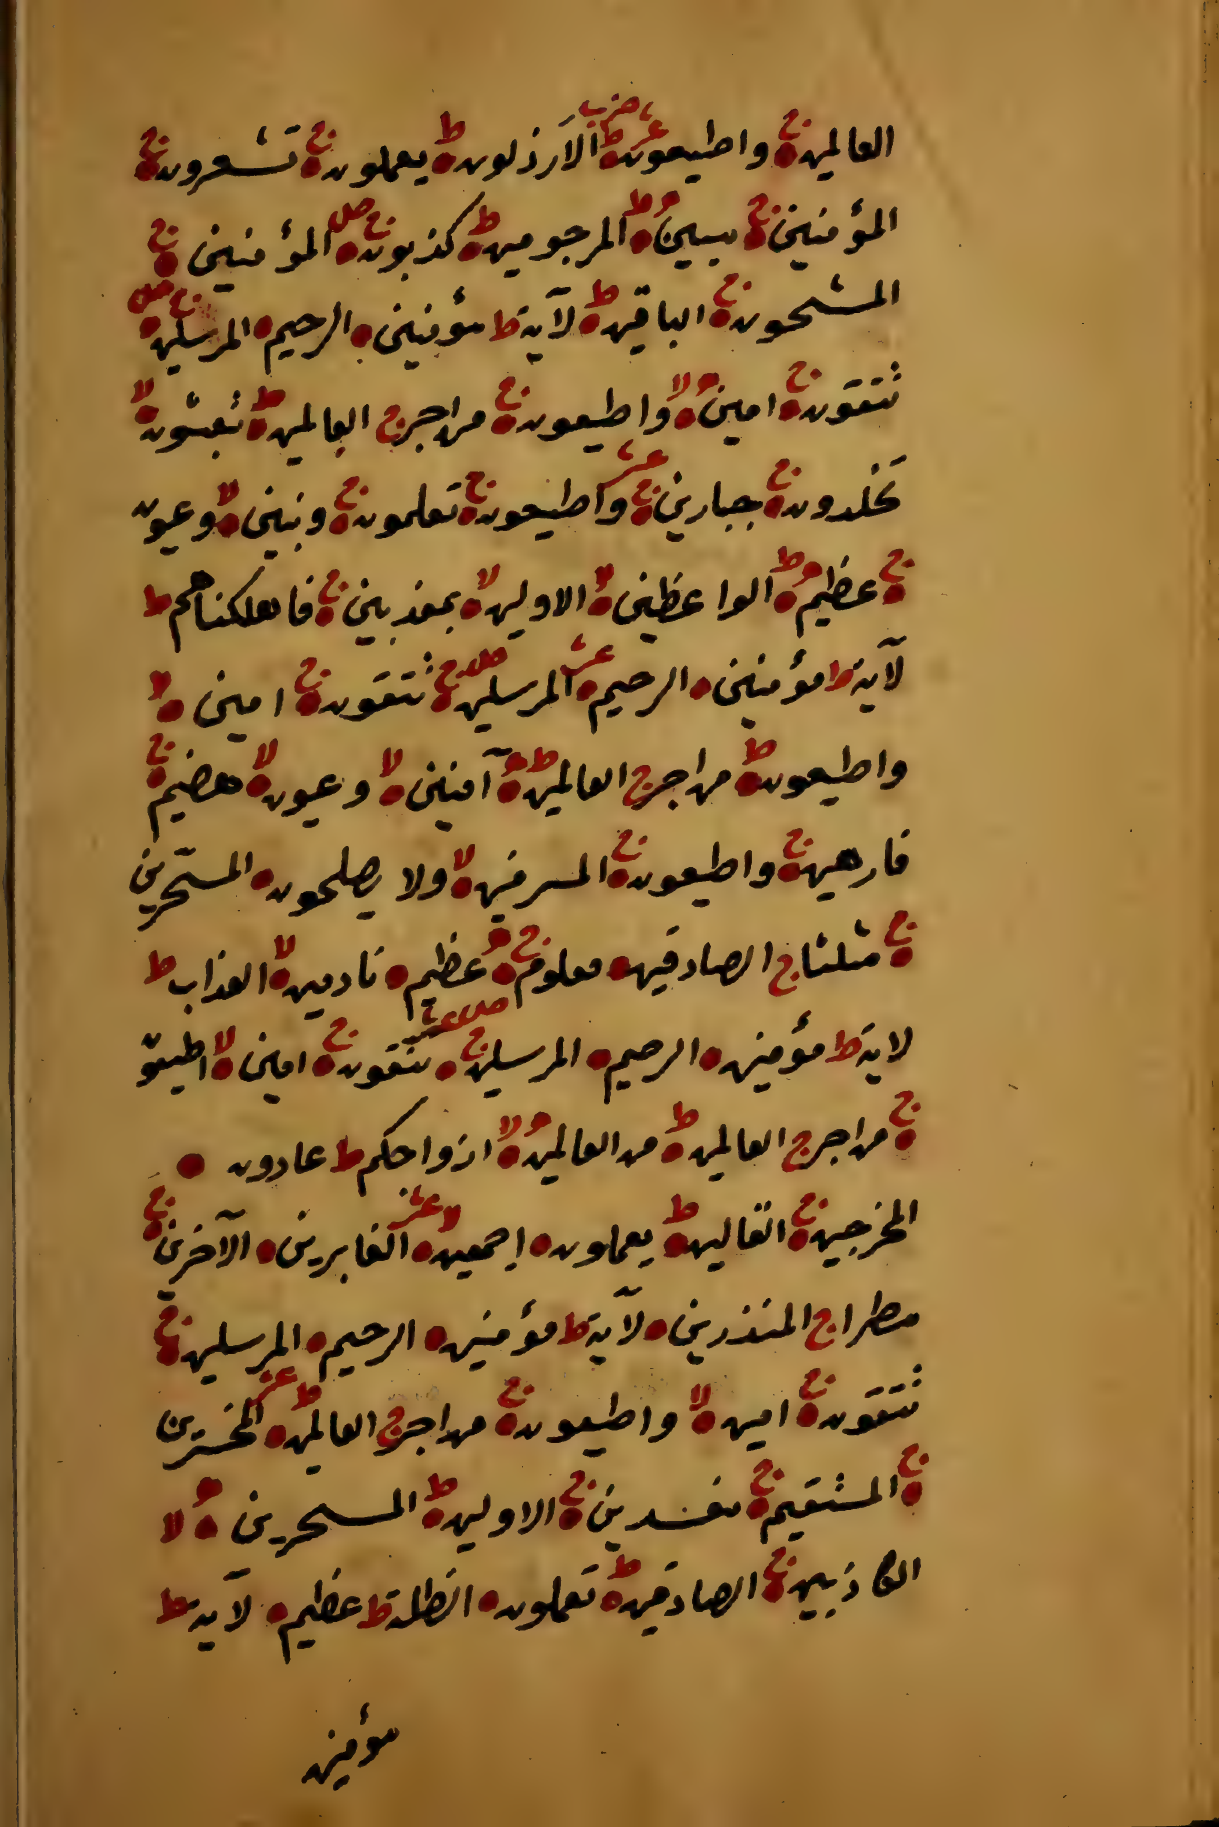 العالمين ج واطيعون ط عشر حزب الارذلون ط يعملون ج تشعرون ج
المؤمنين ج مبين ط المرجومين ط كذبون ج صلى المؤمنين ج
المشحون ج الباقين ط لآية ط مؤمنين الرحيم المرسلين ج صلى
تتقون ج امين لا واطيعون ج من اجر ج العالمين ط تعبثون لا
تخلدون ج جبارين ج عشر واطيعون ج تعلمون ج وبنين لا وعيون
ج عظيم ط الواعظين لا الاولين لا بمعذبين ج فاهلكناهم ط
لآية ط مؤمنين الرحيم عشر المرسلين ج صلى تتقون ج امين لا
واطيعون ط من اجر ج العالمين ط آمنين لا وعيون لا هضيم ج
فارهين ج واطيعون ج المسرفين لا ولا يصلحون المسحرين
ج مثلنا ج الصادقين معلوم ج عظيم نادمين لا العذاب ط
لاية ط مؤمنين الرحيم المرسلين ج صلى عشر تتقون ج امين لا اطيعو
ج من اجر ج العالمين ط من العالمين لا ازواجكم ط عادون
المخرجين ج القالين ط يعملون اجمعين لا عشر الغابرين الآخرين ج
مطرا ج المنذرين لآية ط مؤمنين الرحيم المرسلين ج
تتقون ج امين لا واطيعون ج من اجر ج العالمين ط عشر المخسرين
ج المستقيم ج مفسدين ج الاولين ط المسحرين لا
الكاذبين ج الصادقين ط تعملون الظلة ط عظيم لآية ط
مؤمنين